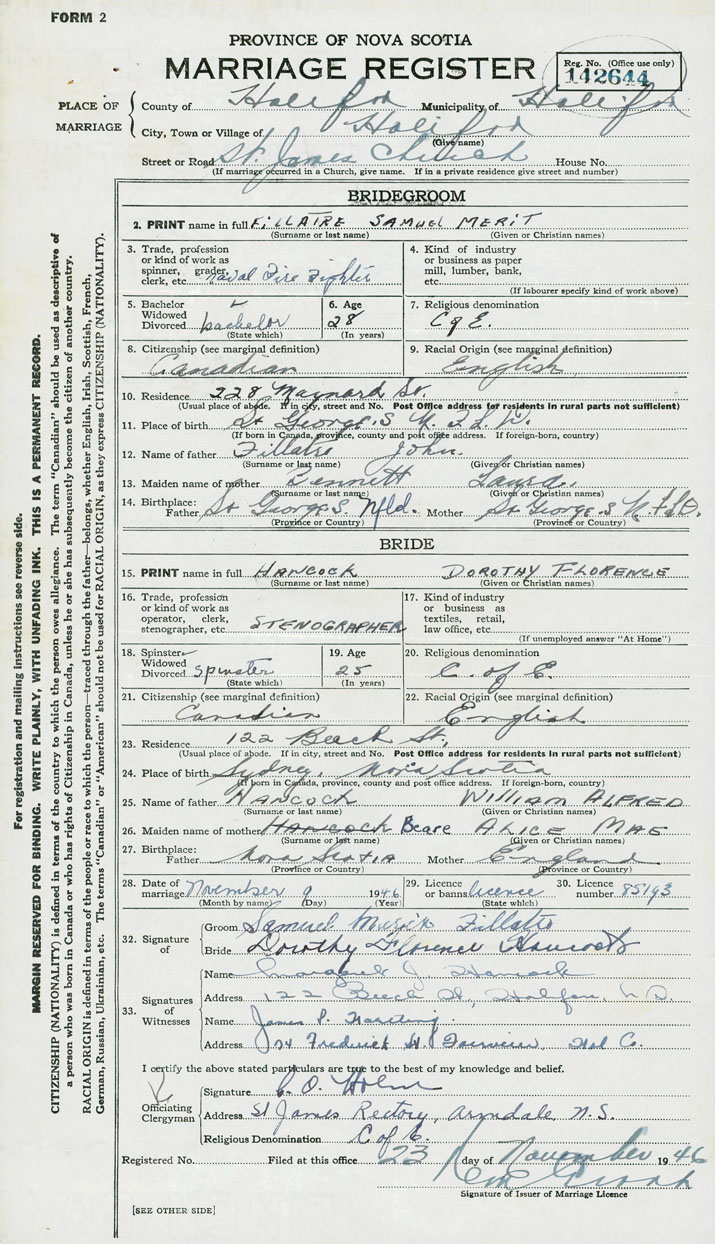 FORM 2
PROVINCE OF NOVA SCOTIA
MARRIAGE REGISTER
Reg. No. (Office use only)
142644
PLACE OF MARRIAGE
County of Halifax Municipality of Halifax
City, Town or Village of Halifax
(Give name)
Street or Road St. James Church House No.
(If marriage occurred in a Church, give name. If in a private residence give street and number)
BRIDEGROOM
2. PRINT name in full FILLATRE SAMUEL MERIT
(Surname or last name) (Given or Christian names)
3. Trade, profession or kind of work as spinner, grader, clerk, etc. Naval Fire Fighter
4. Kind of industry or business as paper mill, lumber, bank, etc.
(If labourer specify kind of work above)
5. Bachelor Widowed Divorced bachelor
(State which)
6. Age 28
(In years)
7. Religious denomination C of E.
8. Citizenship (see marginal definition) Canadian
9. Racial Origin (see marginal definition) English
10. Residence 228 Maynard St.
(Usual place of abode. If in city, street and No. Post Office address for residents in rural parts not sufficient)
11. Place of birth St George.S N.F.L.D.
(If born in Canada, province, county and post office address. If foreign-born, country)
12. Name of father Fillatre John.
(Surname or last name) (Given or Christian names)
13. Maiden name of mother Bennett Laura.
(Surname or last name) (Given or Christian names)
14. Birthplace: Father St George.S. Nfld. Mother St George.S N.F.L.D.
(Province or Country) (Province or Country)
BRIDE
15. PRINT name in full HANCOCK DOROTHY FLORENCE
(Surname or last name) (Given or Christian names)
16. Trade, profession or kind of work as operator, clerk, stenographer, etc. STENOGRAPHER
17. Kind of industry or business as textiles, retail, law office, etc.
(If unemployed answer "At Home")
18. Spinster Widowed Divorced spinster
(State which)
19. Age 25
(In years)
20. Religious denomination C. of E.
21. Citizenship (see marginal definition) Canadian
22. Racial Origin (see marginal definition) English
23. Residence 122 Beech St.
(Usual place of abode. If in city, street and No. Post Office address for residents in rural parts not sufficient)
24. Place of birth Sydney, Nova Scotia
(If born in Canada, province, county and post office address. If foreign-born, country)
25. Name of father HANCOCK WILLIAM ALFRED
(Surname or last name) (Given or Christian names)
26. Maiden name of mother Hancock Beare ALICE MAE
(Surname or last name) (Given or Christian names)
27. Birthplace: Father Nova Scotia Mother England
(Province or Country) (Province or Country)
28. Date of marriage November 9 1946
(Month by name) (Day) (Year)
29. Licence or banns licence
(State which)
30. Licence number 85193
32. Signature of
Groom Samuel Fillatre
Bride Dorothy Florence Hancock
33. Signatures of Witnesses
Name J. Hancock
Address 122 Beech St, Halifax, N.S.
Name James P.
Address Frederick St. Fairview, Hal Co.
I certify the above stated particulars are true to the best of my knowledge and belief.
Officiating Clergyman
Signature
Address St James Rectory, Armdale, N.S.
Religious Denomination C of E.
Registered No. Filed at this office 23 day of November 1946
Signature of Issuer of Marriage Licence
[SEE OTHER SIDE]
For registration and mailing instructions see reverse side.
MARGIN RESERVED FOR BINDING. WRITE PLAINLY, WITH UNFADING INK. THIS IS A PERMANENT RECORD.
CITIZENSHIP (NATIONALITY) is defined in terms of the country to which the person owes allegiance. The term "Canadian" should be used as descriptive of
a person who was born in Canada or who has rights of Citizenship in Canada, unless he or she has subsequently become the citizen of another country.
RACIAL ORIGIN is defined in terms of the people or race to which the person—traced through the father—belongs, whether English, Irish, Scottish, French,
German, Russian, Ukrainian, etc. The terms "Canadian" or "American" should not be used for RACIAL ORIGIN, as they express CITIZENSHIP (NATIONALITY).